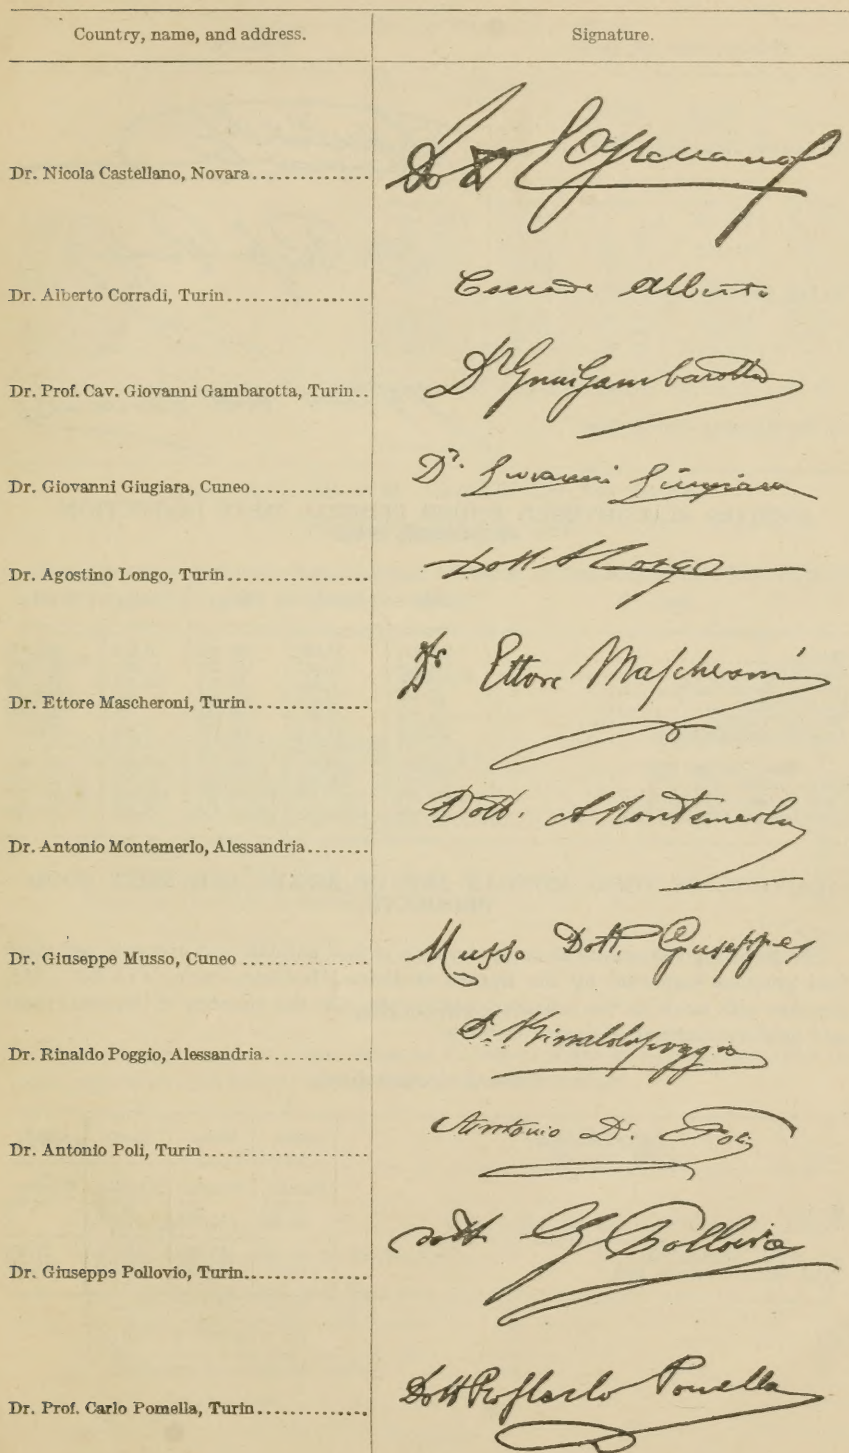 Country, name, and address. Signature.
Dr. Nicola Castellano, Novara............... Dott Castellano
Dr. Alberto Corradi, Turin.................. Corradi Alberto
Dr. Prof. Cav. Giovanni Gambarotta, Turin.. Dr Gambarotta
Dr. Giovanni Giugiara, Cuneo............... Dr. Giovanni Giugiara
Dr. Agostino Longo, Turin.................. Dott A Longo
Dr. Ettore Mascheroni, Turin............... Dr Ettore Mascheroni
Dr. Antonio Montemerlo, Alessandria........ Dott. A Montemerlo
Dr. Giuseppe Musso, Cuneo ................ Musso Dott. Giuseppe
Dr. Rinaldo Poggio, Alessandria............. D. Rinaldo Poggio
Dr. Antonio Poli, Turin..................... Antonio Dr. Poli
Dr. Giuseppe Pollovio, Turin................ dott. G Pollovio
Dr. Prof. Carlo Pomella, Turin.............. Dott Prof Carlo Pomella